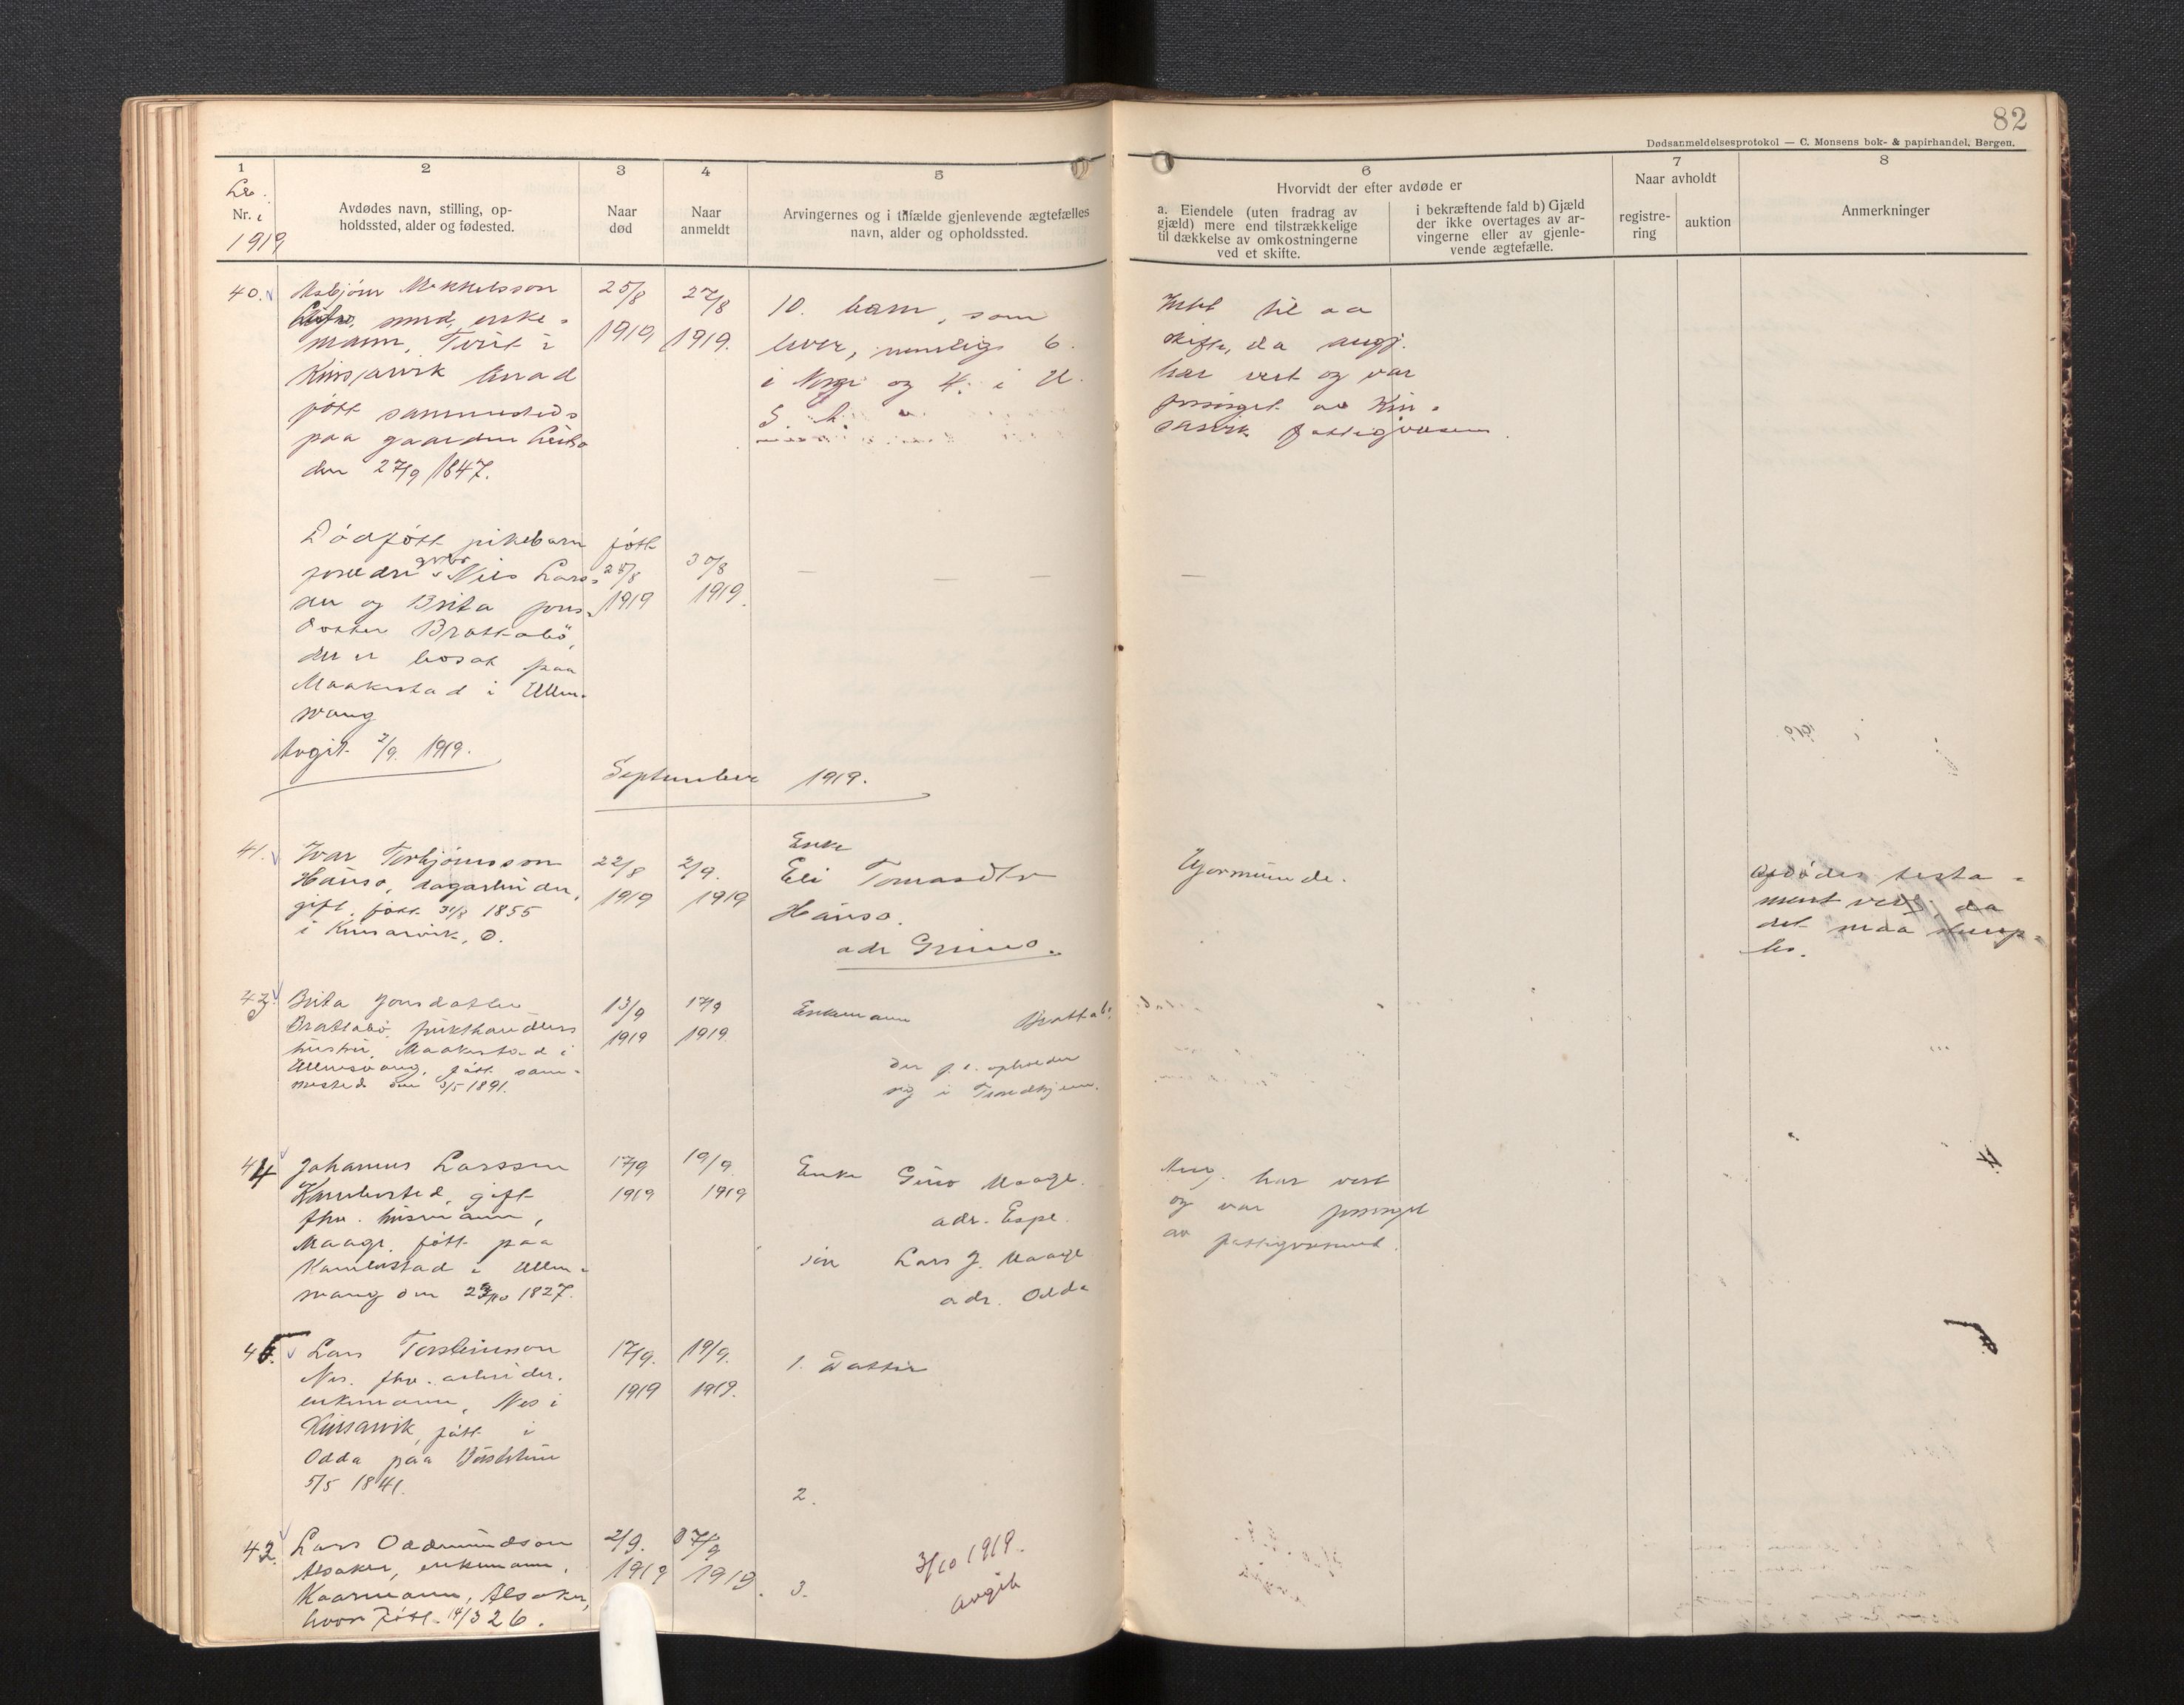 82
Dødsanmeldelsesprotokol — C. Monsens bok- & papirhandel, Bergen.
1
Nr. i
1919
2
Avdødes navn, stilling, op-
holdssted, alder og fødested.
3
Naar
død
4
Naar
anmeldt
5
Arvingernes og i tilfælde gjenlevende ægtefælles
navn, alder og opholdssted.
6
Hvorvidt der efter avdøde er
a. Eiendele (uten fradrag av
gjæld) mere end tilstrækkelige
til dækkelse av omkostningerne
ved et skifte.
i bekræftende fald b) Gjæld
der ikke overtages av ar-
vingerne eller av gjenle-
vende ægtefælle.
7
Naar avholdt
registre-
ring
auktion
8
Anmerkninger
40.
Asbjørn Mikkelsson
smed, enke-
mann, Tveit i
Kinsarvik herad
født sammesteds
paa gaarden
den 27/9 1847.
25/8
1919
27/8
1919.
10. barn, som
lever, nemlig 6.
i Norge og 4. i U.
S. A.
Intet til aa
skifte, da
har vert og var
forsørget av Kin-
sarvik fattigvæsen.
Dødfött pikebarn
foreldre gvbr Nils Lars-
sen og Brita Jons-
dotter Brattabö,
der er bosat paa
Maakestad i Ullen-
svang
født
28/8
1919
30/8
1919.
— — — —
Avgit 2/9. 1919.
September 1919.
41.
Ivar Torbjörnsson
Hauso, dagarbeider,
gift, født 31/8 1855
i Kinsarvik,
22/8
1919
2/9.
1919
Enke
Eli Tomasdtr
Hauso.
adr Grimo.
Uformuende.
testa-
ment da
det maa
43.
Brita Jonsdatter
Brattabö frukthandlers
hustru, Maakestad i
Ullensvang, født sam-
mested den 3/5 1891.
13/9
1919
17/9
1919.
Enkemann Brattabö
der p. t. opholder
sig i Trondhjem.
44
Johannes Larssen
Kambestad, gift
fhv. husmann,
Maage, født paa
Kambestad i Ullen-
svang den 1827.
17/9
1919
19/9.
1919
Enke Guro Maage.
adr. Espe.
sön Lars J. Maage
adr. Odda
Ang. har vert
og var forsørget
av fattigvesenet.
45.
Lars Torsteinsson
Nes. fhv. arbeider.
enkemann, Nes i
Kinsarvik, født i
Odda paa
5/5 1841.
17/9.
1919
19/9.
1919.
1. datter
2.
3.
42.
Lars Oddmundson
Alsaker, enkemann,
Kaarmann, Alsaker,
hvor født 14/3 26.
2/9.
1919
17/9
1919.
3/10 1919.
avgit